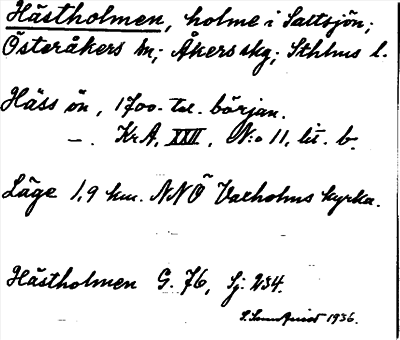 Hästholmen, holme i Saltsjön;
Österåkers sn; Åkers skg; Sthlms l.
Häss ön, 1700-tal. början.
—. Kr A. XXII, N:o 11, lit. b.
Läge 1,9 km. NNÖ Vaxholms kyrka.
Hästholmen G. 76, Sj. 234.
1936.